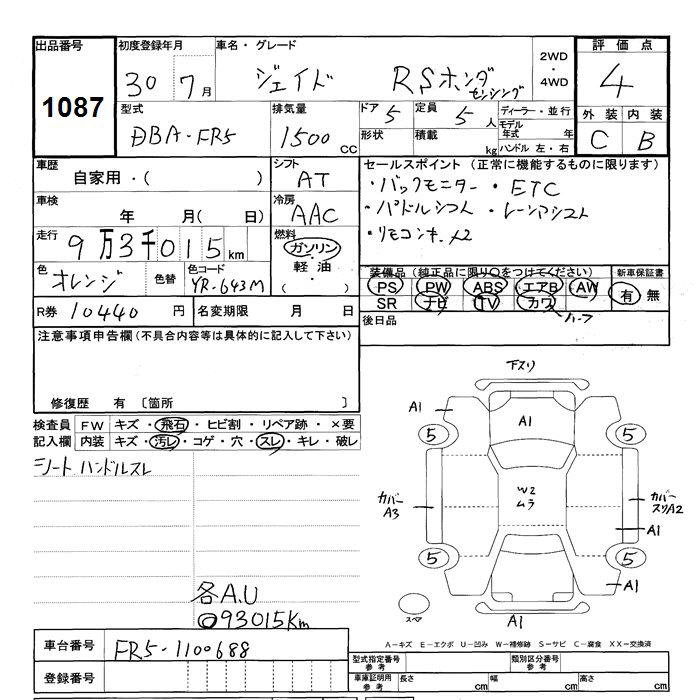 出品番号 初度登録年月 車名・グレード 2WD ・ 4WD 評価点
1087 30 7月 ジェイド RSホンダセンシング 4
型式 排気量 ドア 5 定員 5人 ディーラー・並行 外装 内装
DBA-FR5 1500cc 形状 積載 kg モデル年式 年 ハンドル 左・右 C B
車歴 シフト セールスポイント (正常に機能するものに限ります)
自家用・( ) AT ・バックモニター ・ETC
車検 冷房 ・パドルシフト ・レーンアシスト
年 月( 日) AAC ・リモコンキー×2
走行 9万3千015km 燃料 ガソリン・軽油・( )
色 オレンジ 色替 色コード YR-643M
装備品 (純正品に限り○をつけてください) 新車保証書
PS PW ABS エアB AW 有 無
SR ナビ TV カワ ハーフ
R券 10440円 名変期限 月 日 後日品
注意事項申告欄 (不具合内容等は具体的に記入して下さい)
修復歴 有 〔箇所 〕
検査員 FW キズ・飛石・ヒビ割・リペア跡・×要
記入欄 内装 キズ・汚レ・コゲ・穴・スレ・キレ・破レ
シートハンドルスレ
下スリ
A1 A1
5 5
W2
ムラ
カバー A3 カバー スリA2
A1
5 5
A1
スペア A1
各A.U
◎93015Km
A-キズ E-エクボ U-凹み W-補修跡 S-サビ C-腐食 XX-交換済
車台番号 FR5-1100688
型式指定番号 参考 類別区分番号 参考
登録番号
車庫証明用 参考 長さ cm 幅 cm 高さ cm